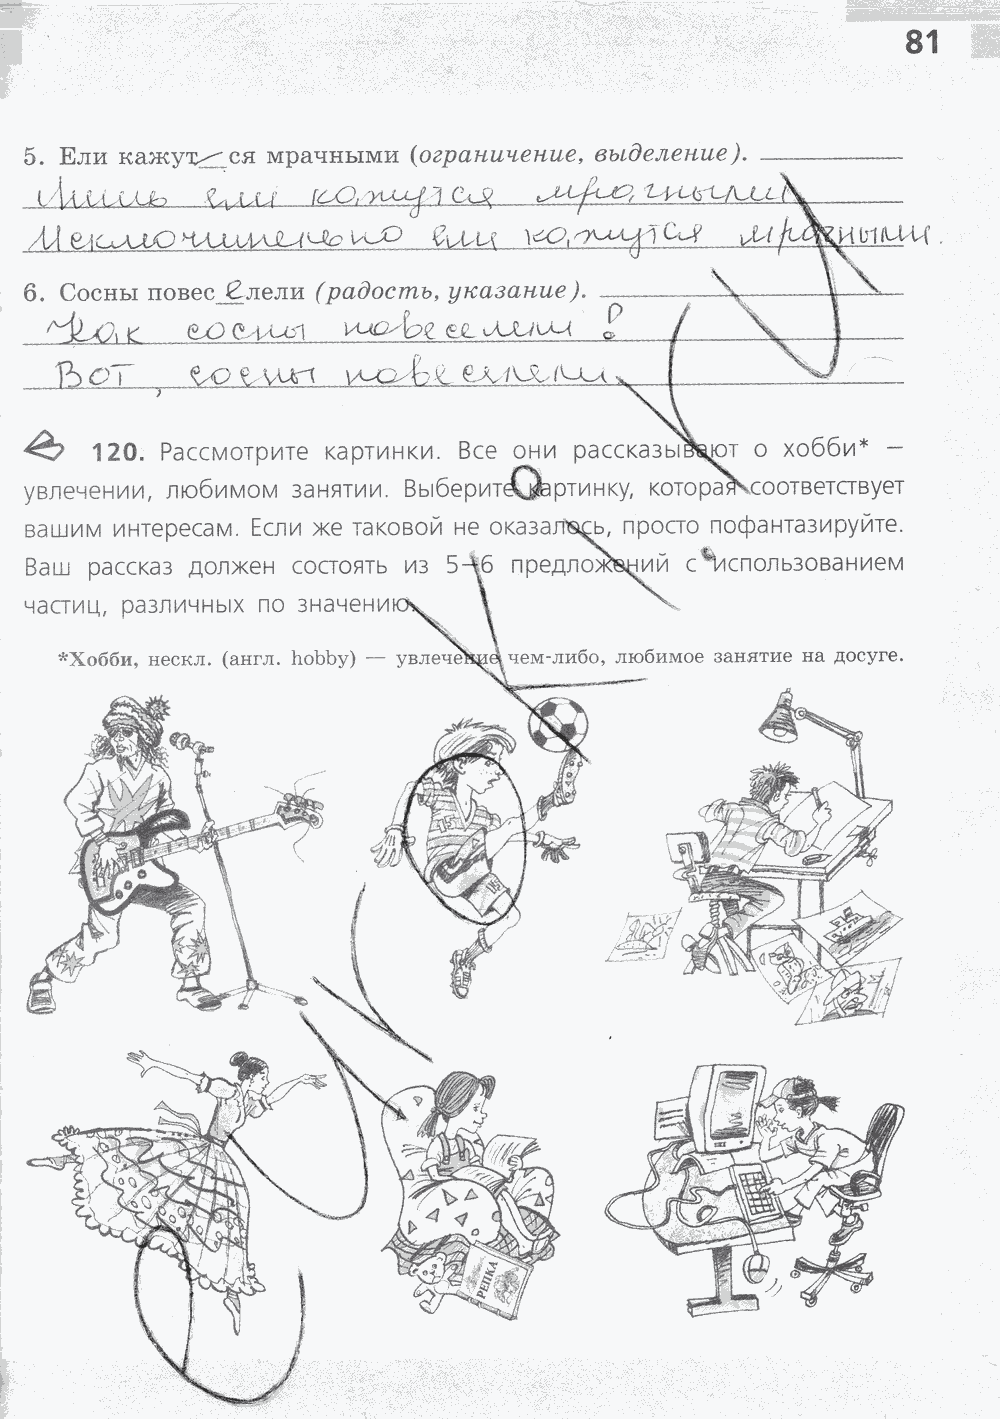 81
5. Ели кажут ся мрачными (ограничение, выделение).
Лишь ели кажутся мрачными
Исключительно ели кажутся мрачными.
6. Сосны повес е лели (радость, указание).
Как сосны повеселели!
Вот, сосны повеселели.
120. Рассмотрите картинки. Все они рассказывают о хобби* —
увлечении, любимом занятии. Выберите картинку, которая соответствует
вашим интересам. Если же таковой не оказалось, просто пофантазируйте.
Ваш рассказ должен состоять из 5–6 предложений с использованием
частиц, различных по значению.
*Хобби, нескл. (англ. hobby) — увлечение чем-либо, любимое занятие на досуге.
15
15
РЕПКА